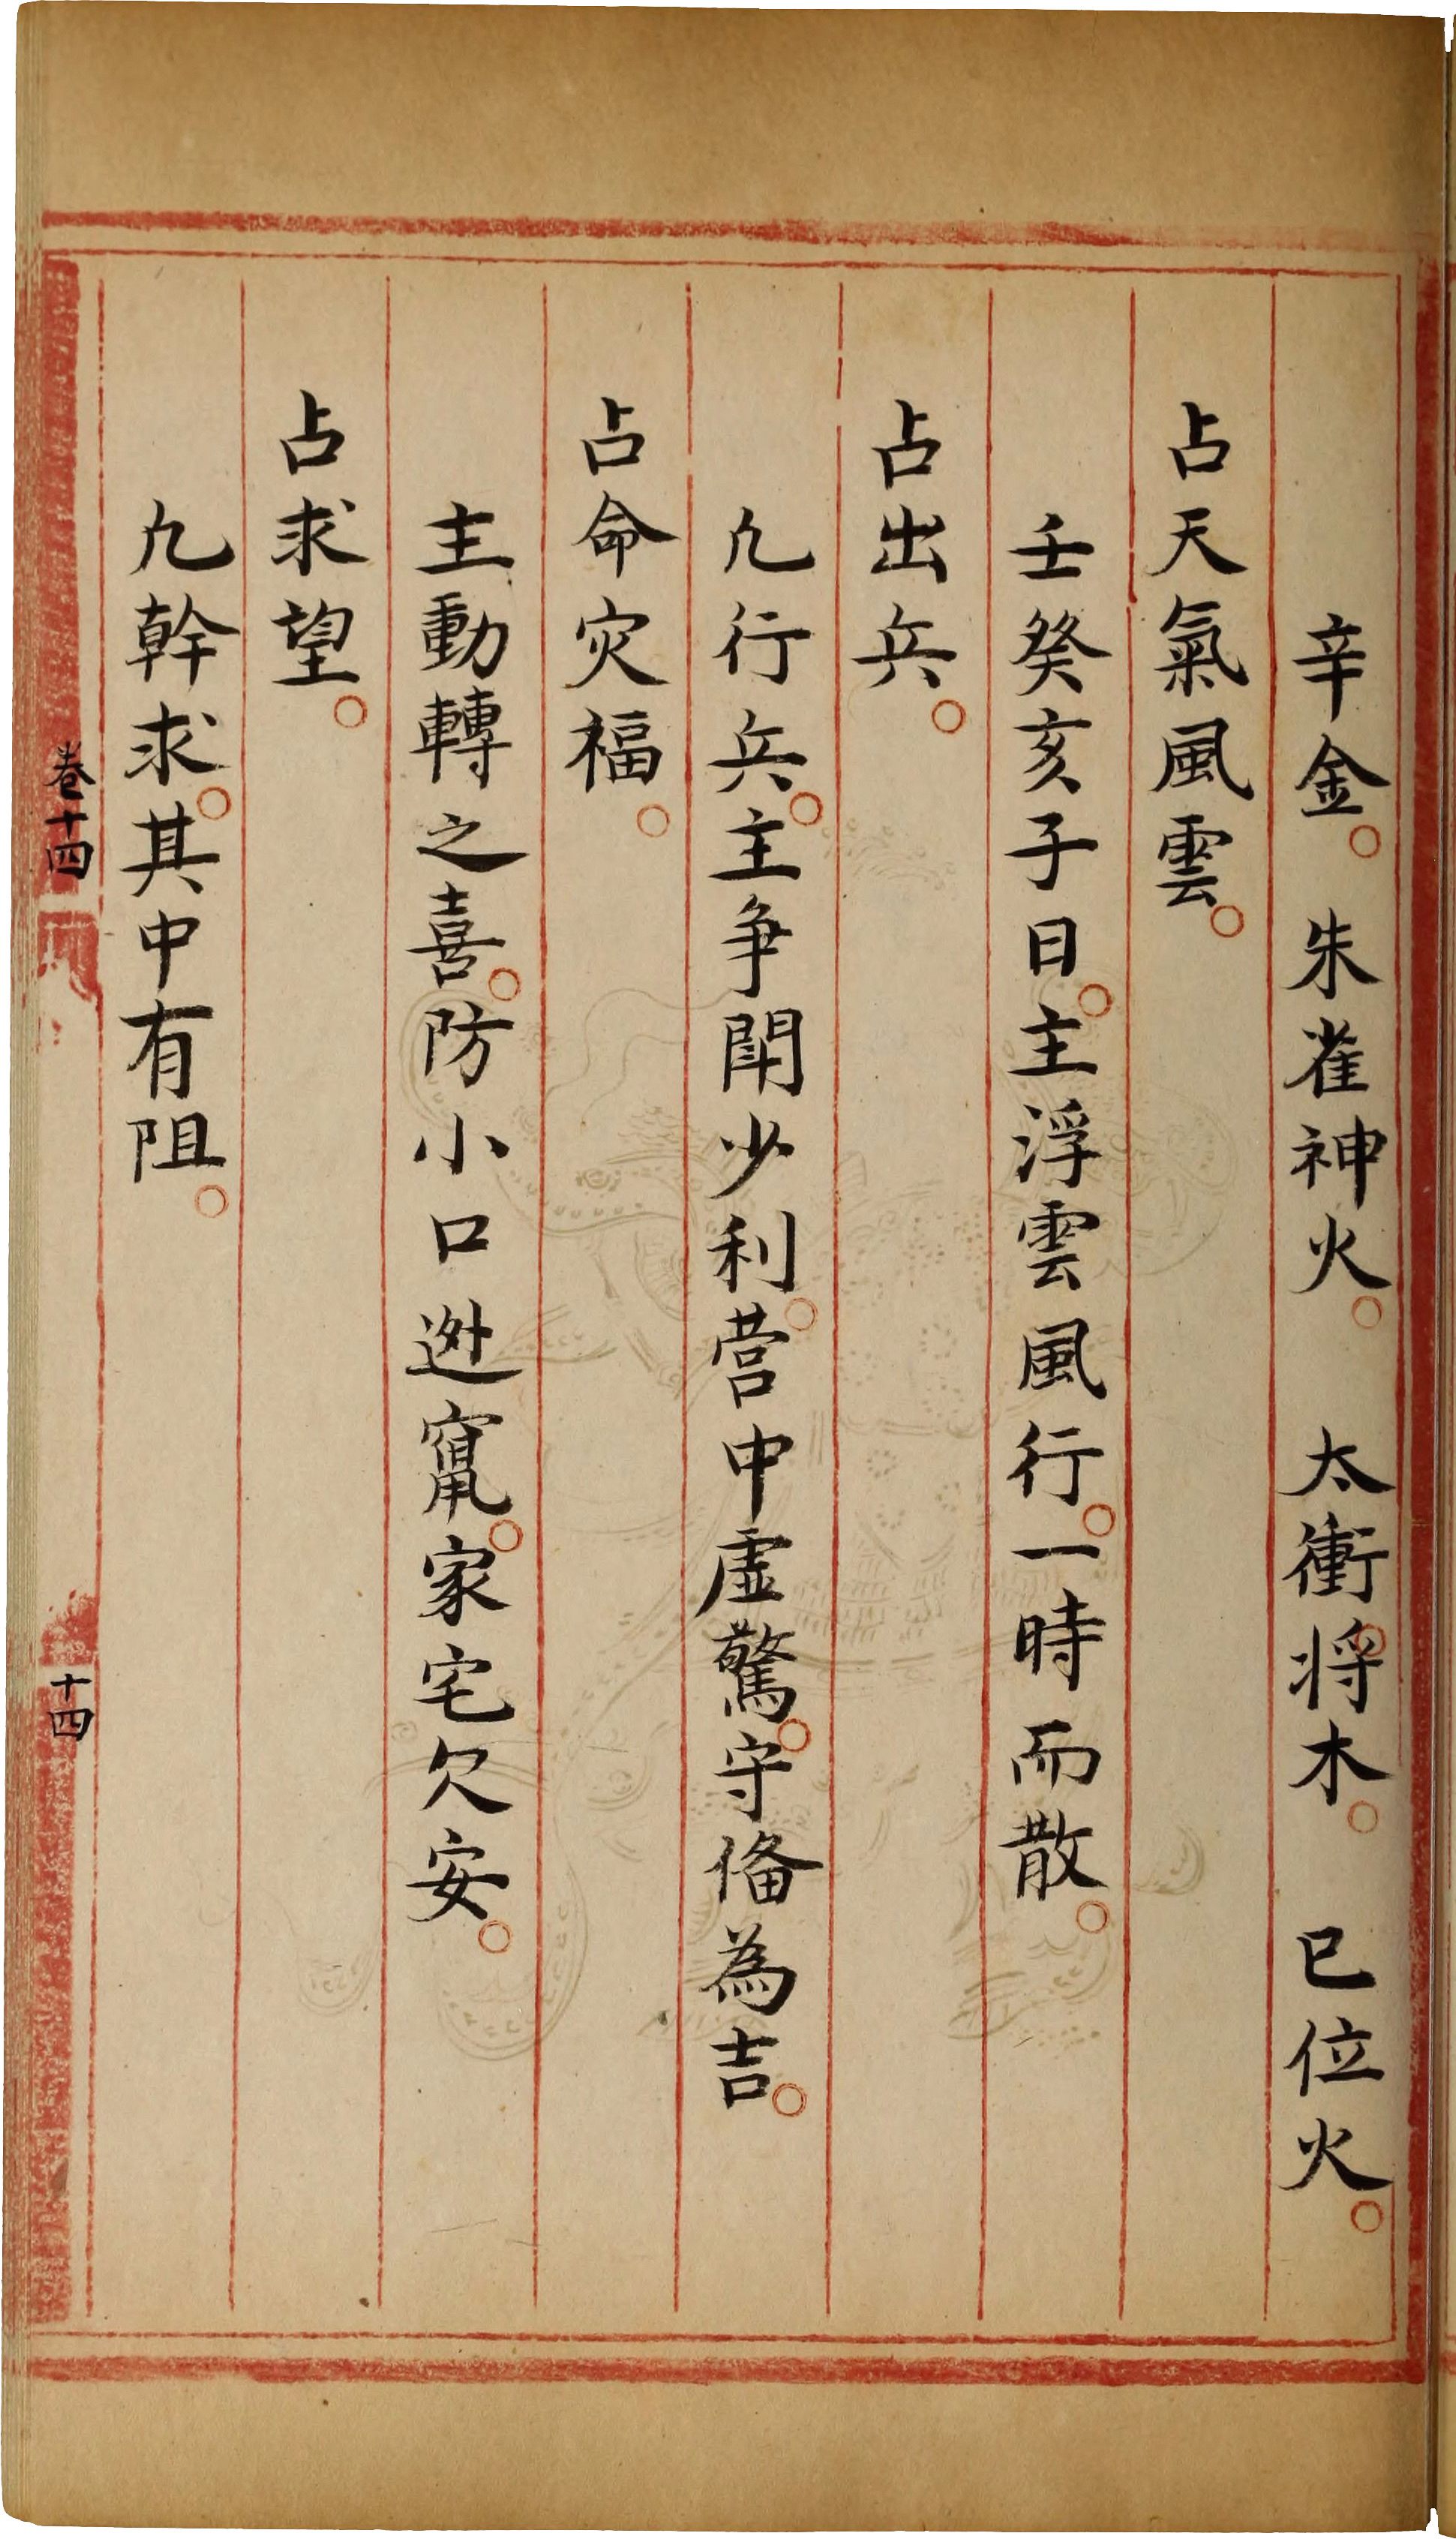 辛金。朱雀神火。太衝將木。巳位火。
占天氣風雲。
壬癸亥子日。主浮雲風行。一時而散。
占出兵。
凢行兵。主爭閗少利。营中虛驚。守俻為吉。
占命灾福。
主動轉之喜。防小口迯竄。家宅欠安。
占求望。
凢幹求。其中有阻。
卷十四
十四